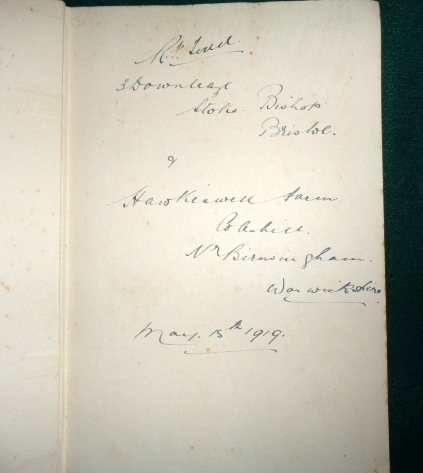 3 Downleaze
Stoke Bishop
Bristol.
&
Hawkeswell Farm.
Coleshill.
Nr Birmingham.
Warwickshire.
May. 15th 1919.